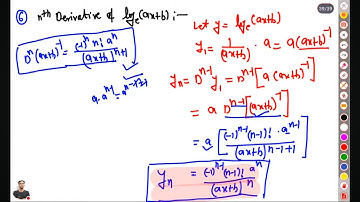 39/39
⑥ nth Derivative of logₑ(ax+b) :—
Dⁿ(ax+b)⁻¹ = (-1)ⁿ n! aⁿ / (ax+b)ⁿ⁺¹
a·aⁿ⁻¹ = aⁿ⁻¹⁺¹
Let y = logₑ(ax+b)
y₁ = 1/(ax+b) · a = a(ax+b)⁻¹
yₙ = Dⁿ⁻¹ y₁ = Dⁿ⁻¹[a(ax+b)⁻¹]
= a Dⁿ⁻¹[(ax+b)⁻¹]
= a[(-1)ⁿ⁻¹(n-1)! · aⁿ⁻¹ / (ax+b)ⁿ⁻¹⁺¹]
yₙ = (-1)ⁿ⁻¹(n-1)! aⁿ / (ax+b)ⁿ